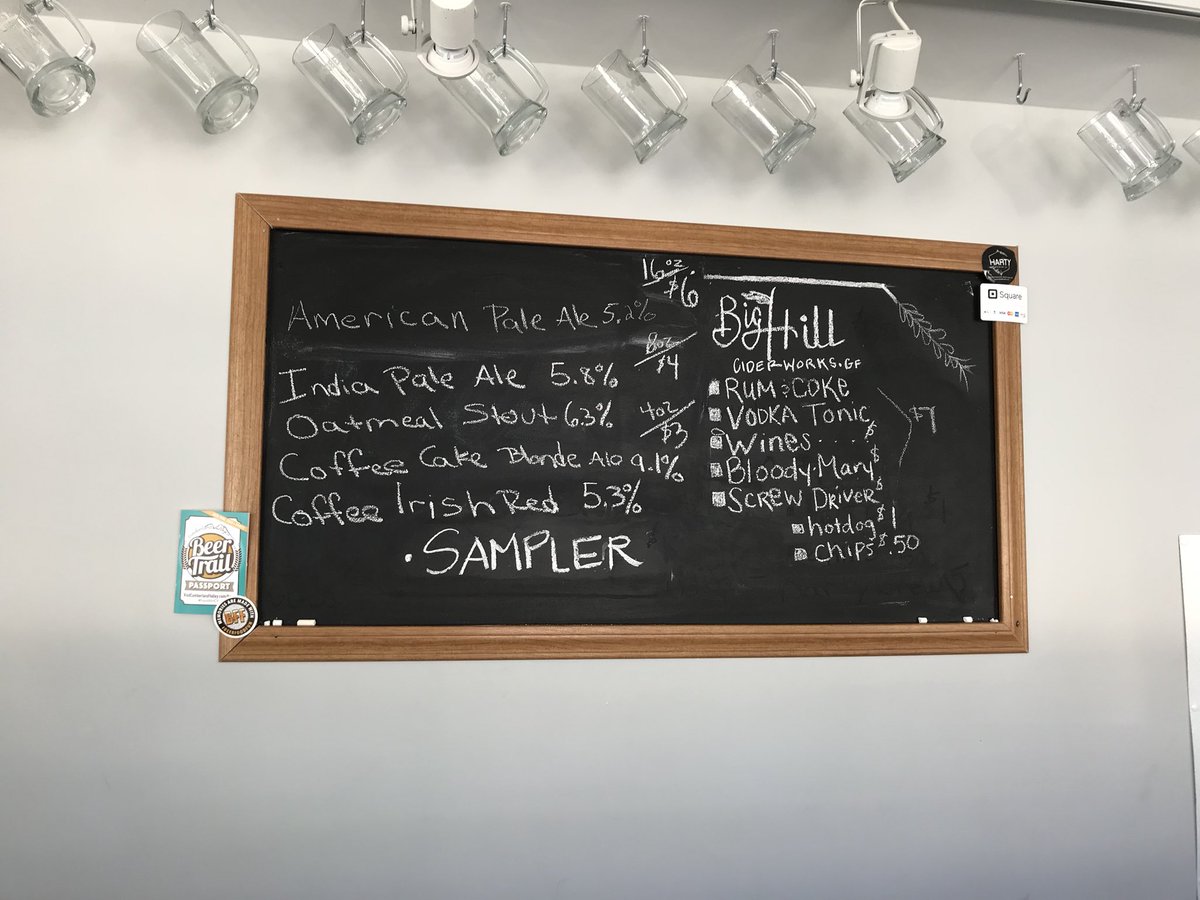 16oz/$6.
American Pale Ale 5.2%
8oz/$4
India Pale Ale 5.8%
Oatmeal Stout 6.3%
4oz/$3
Coffee Cake Blonde Ale 9.1%
Coffee Irish Red 5.3%
• SAMPLER
Big Hill
CIDERWORKS.GF
RUM & COKE
VODKA TONIC $
WINES .... $
Bloody Mary $
SCREW DRIVER $
$7
hotdog $1
Chips $.50
HARTY
Square
Beer
Trail
PASSPORT
BFF